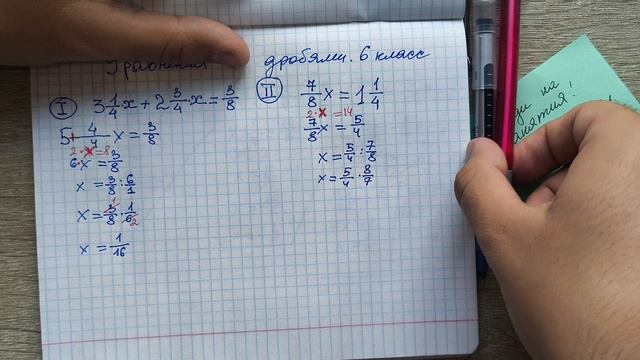 дробями. 6 класс
I 3 1/4 · x + 2 3/4 · x = 3/8
5 4/4 x = 3/8
2 · x = 8
6 · x = 3/8
x = 3/8 : 6/1
x = 3/8 · 1/6 1 2
x = 1/16
II 7/8 x = 1 1/4
2 · x = 14
7/8 x = 5/4
x = 5/4 : 7/8
x = 5/4 · 8/7
на